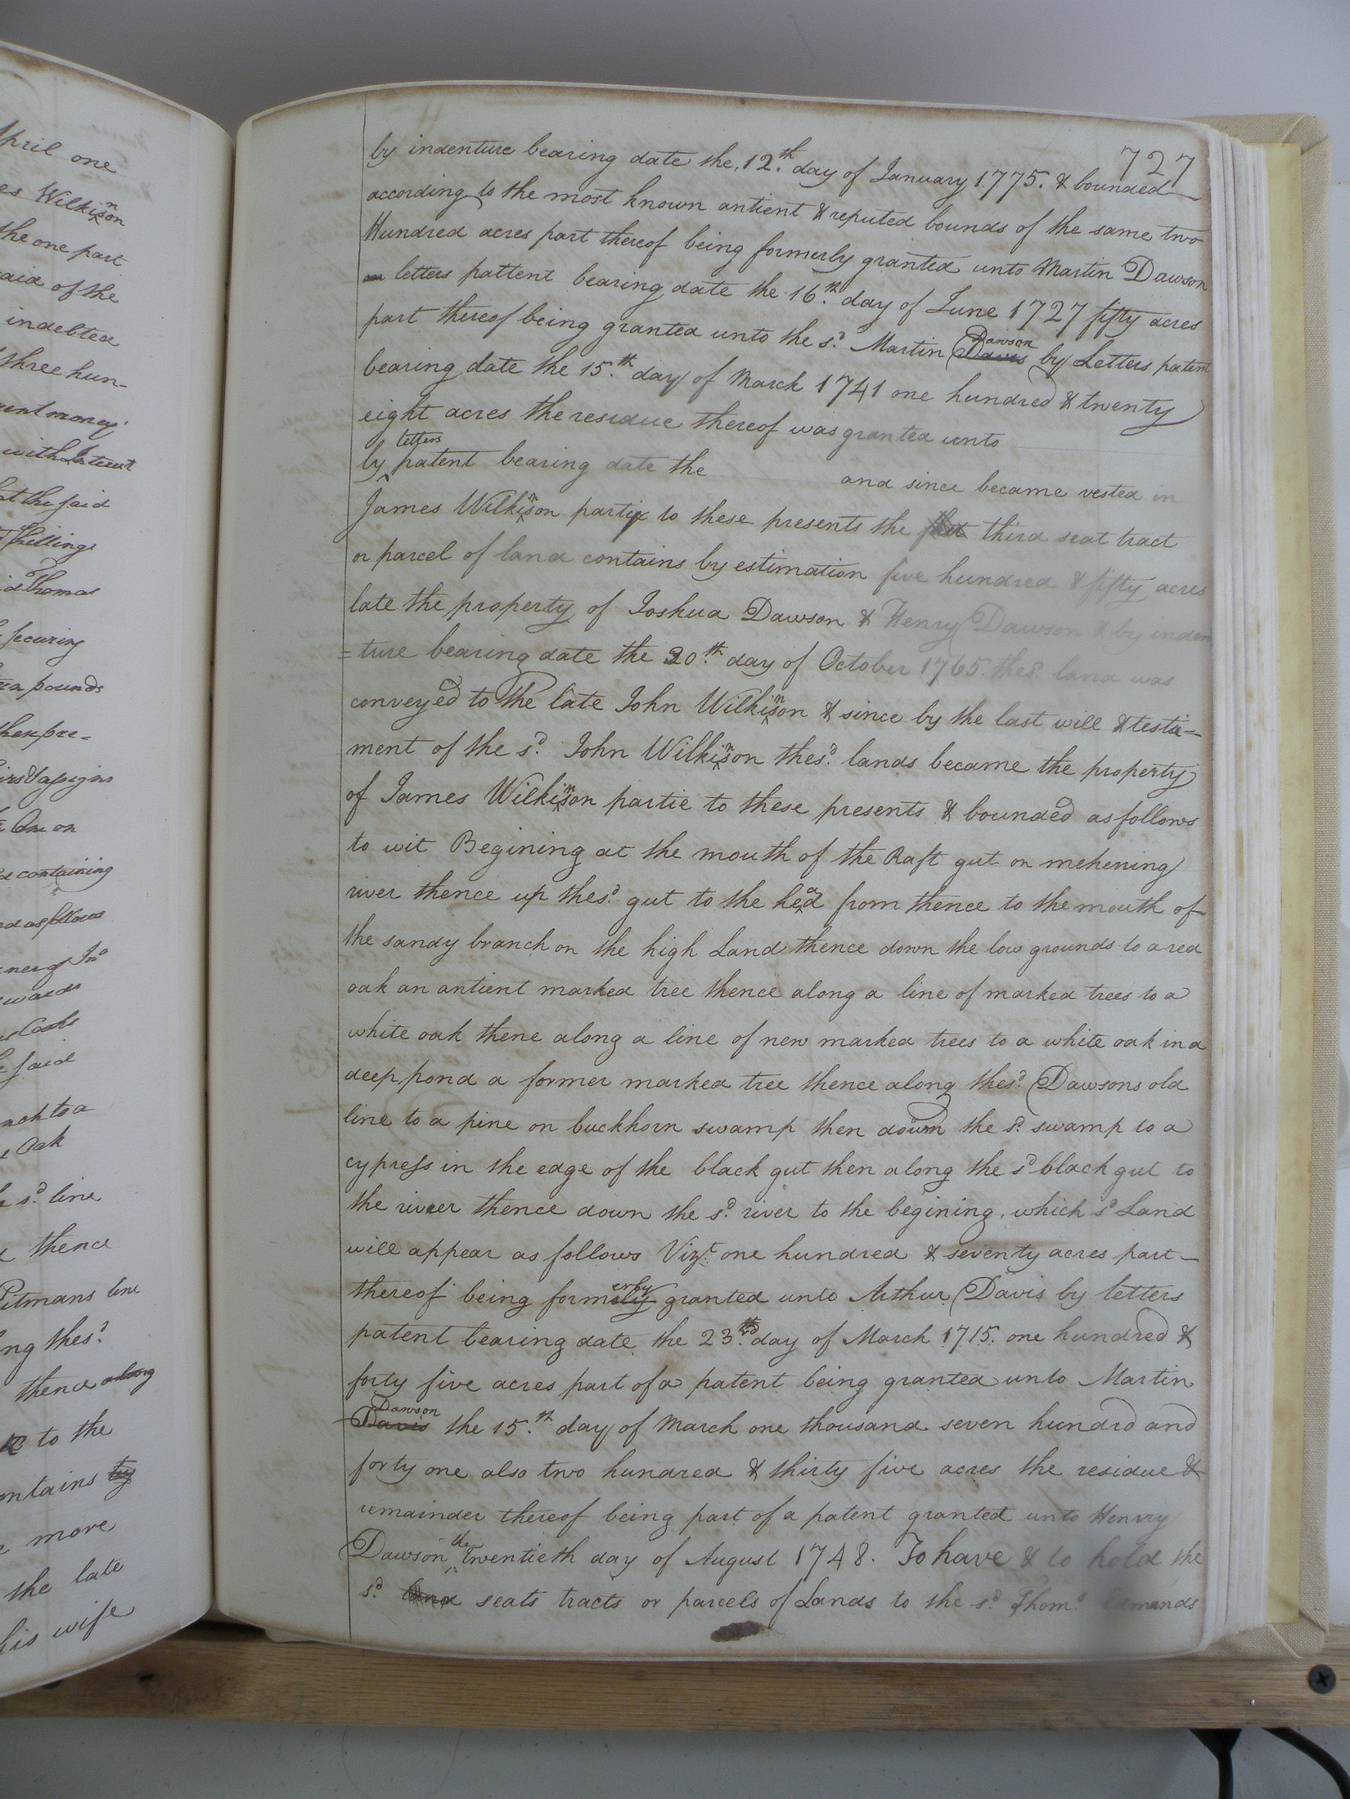 pril one
es Wilkinson
the one part
aid of the
indebted
three hun-
money
with Interest
at the said
shillings
id Thomas
securing
pounds
then pre-
irs & assigns
on
containing
nd as follows
ner of Jno
wards
Cooks
said
nch to a
Oak
s.d line
thence
Pitmans line
ng thes.d
thence along
to the
ontains
more
the late
his wife
727
by indenture bearing date the 12.th day of January 1775. & bounded
according to the most known antient & reputed bounds of the same two
Hundred acres part thereof being formerly granted unto Martin Dawson
letters pattent bearing date the 16.th day of June 1727 fifty acres
part thereof being granted unto the s.d Martin Davis Dawson by Letters patent
bearing date the 15.th day of March 1741 one hundred & twenty
eight acres the residue thereof was granted unto
by letters patent bearing date the and since became vested in
James Wilkinson partie to these presents the third seat tract
or parcel of land contains by estimation five hundred & fifty acres
late the property of Joshua Dawson & Henry Dawson & by inden
=ture bearing date the 20.th day of October 1765. thes.d land was
conveyed to the late John Wilkinson & since by the last will & testa-
ment of the s.d John Wilkinson thes.d lands became the property
of James Wilkinson partie to these presents & bounded as follows
to wit Begining at the mouth of the Raft gut on mehening
river thence up thes.d gut to the head from thence to the mouth of
the sandy branch on the high Land thence down the low grounds to a red
oak an antient marked tree thence along a line of marked trees to a
white oak thene along a line of new marked trees to a white oak in a
deep pond a former marked tree thence along thes.d Dawsons old
line to a pine on buckhorn swamp then down the s.d swamp to a
cypress in the edge of the black gut then along the s.d black gut to
the river thence down the s.d river to the begining, which s.d Land
will appear as follows Viz.t one hundred & seventy acres part-
thereof being formerly granted unto Arthur Davis by letters
patent bearing date the 23.rd day of March 1715. one hundred &
forty five acres part of a patent being granted unto Martin
Davis Dawson the 15.th day of March one thousand seven hundrd and
forty one also two hundred & thirty five acres the residue &
remainder thereof being part of a patent granted unto Henry
Dawson the twentieth day of August 1748. To have & to hold the
s.d Land seats tracts or parcels of Lands to the s.d Thom.s Edmunds